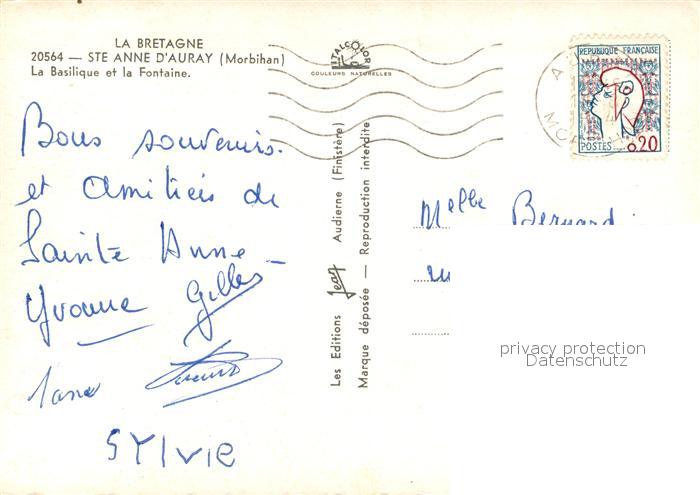 LA BRETAGNE
20564 — STE ANNE D'AURAY (Morbihan)
La Basilique et la Fontaine.
ITALCOLOR
COULEURS NATURELLES
REPUBLIQUE FRANÇAISE
POSTES 0,20
Bons souvenirs.
et amitiés de
Sainte Anne
Yvonne Gilles
SYLVIE
Les Editions Jean Audierne (Finistère)
Marque déposée — Reproduction interdite
Melle Bernard
privacy protection
Datenschutz